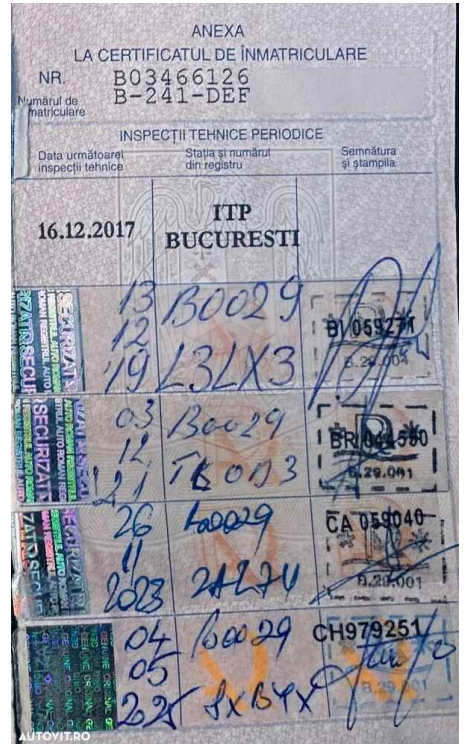 ANEXA
LA CERTIFICATUL DE ÎNMATRICULARE
NR. B03466126
Numărul de
matriculare B-241-DEF
INSPECȚII TEHNICE PERIODICE
Data următoarei
inspecții tehnice
Stația și numărul
din registru
Semnătura
și ștampila
16.12.2017
ITP
BUCURESTI
13
12
'19
B0029
L3LX3
BI 059271
B.29.004
03
12
'21
B0029
BR 044580
B.29.001
26
11
2023
B0029
CA 059040
B.29.001
04
05
B0029
CH979251
B.29.001
SECURIZAT
AUTOVIT.RO